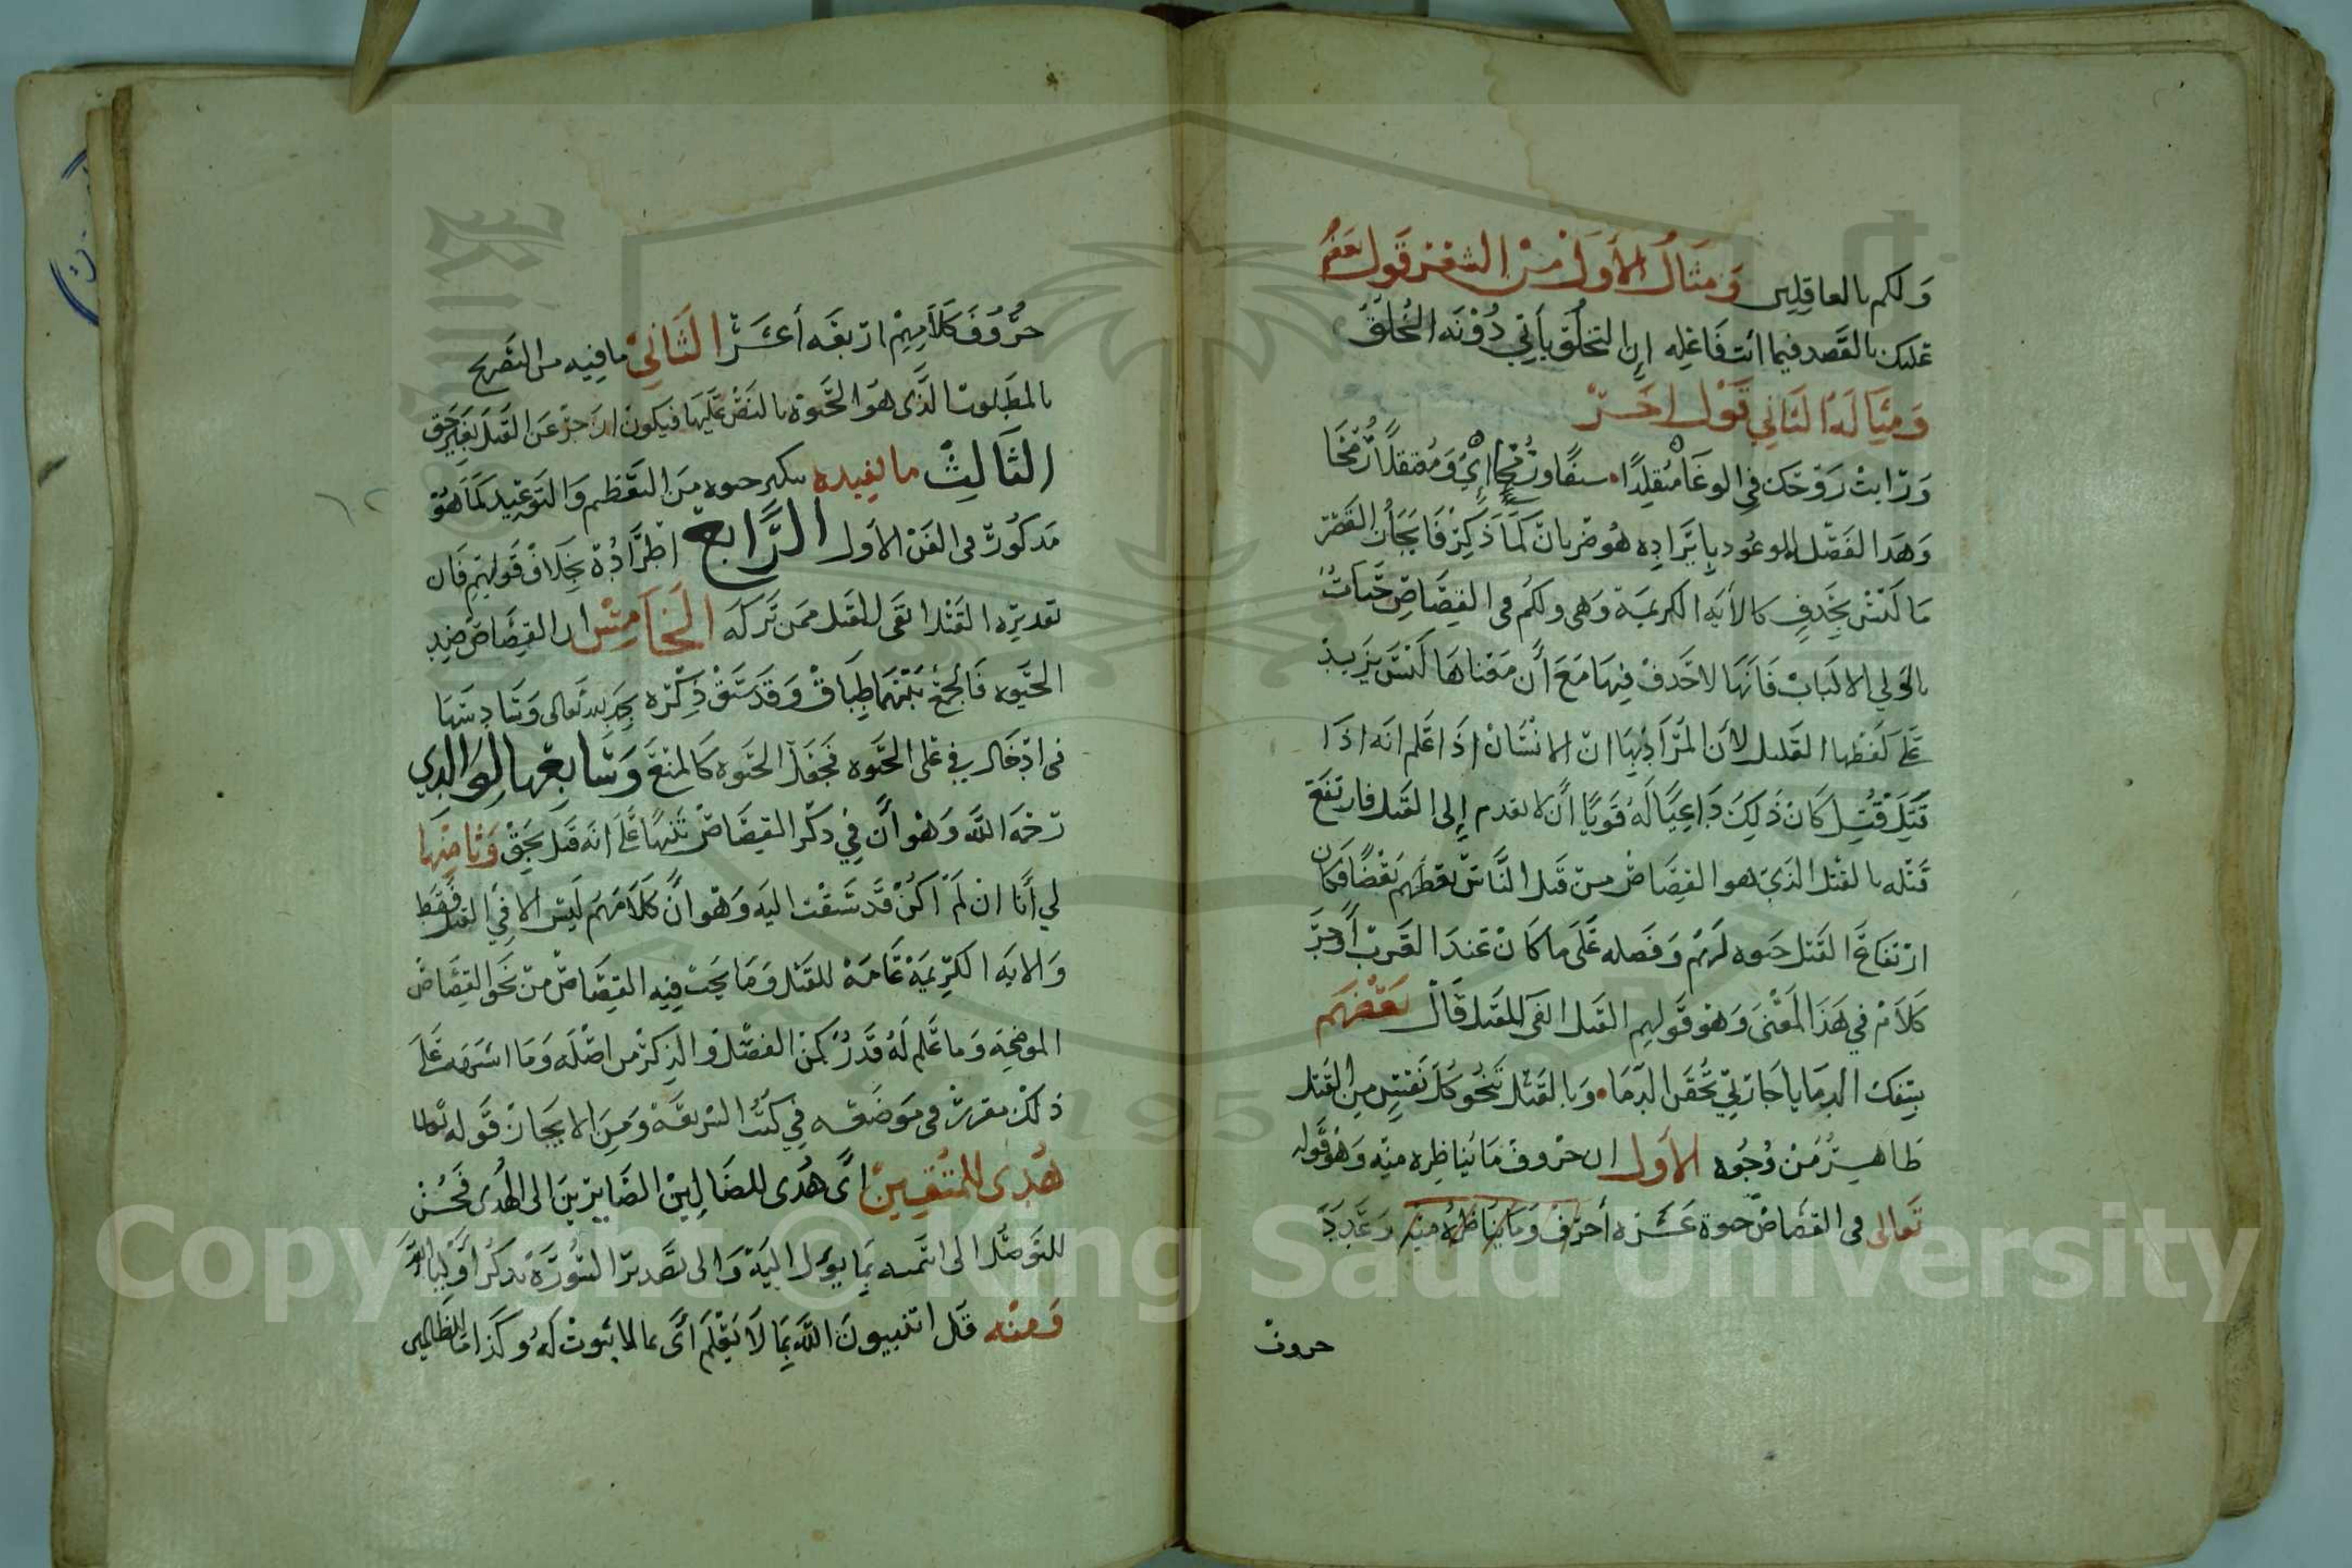 ولكم بالعاقلين ومثال الأول من الشعر قول بعضهم
عليك بالقصد فيما انت فاعله ان التخلق يأتي دونه الخلق
ومثاله الثاني قول اخر
ورايت زوجك في الوغا متقلدا سيفا ورمحا اي ومعتقلا رمحا
وهذا الفصل الموعود بايراده هو ضربان كما ذكر فايجاز القصر
ما ليس بحذف كالأيه الكريمة وهي ولكم في القصاص حيات
يا اولي الالباب فانها لا حذف فيها مع أن معناها ليس يزيد
على لفظها القليل لأن المراد بها ان الانسان اذا علم انه اذا
قتل قتل كان ذلك داعيا له قويا أن لا يقدم إلى القتل فارتفع
قتله بالقتل الذي هو القصاص من قتل الناس بعضهم بعضا فكان
ارتفاع القتل حيوه لهم وفصله على ما كان عند العرب أوجز
كلام في هذا المعنى وهو قولهم القتل انفى للقتل قال بعضهم
بسفك الدما يا جارتي تحقن الدما وبالقتل تنجو كل نفس من القتل
ظاهر من وجوه الأول ان حروف ما يناظره منه وهو قوله
تعالى في القصاص حيوة عشره أحرف وما يناظره منه وعدد
حروف
حروف كلامهم اربعه أعشر الثاني ما فيه من التصريح
بالمطلوب الذي هو الحيوة بالنص عليها فيكون ازجر عن القتل بغير حق
الثالث ما يفيده تنكير حيوه من التعظيم والتوعيد كما هو
مذكور في الفن الأول الرابع اطراده بخلاف قولهم فان
تقديره القتل انفى للقتل ممن تركه الخامس ان القصاص ضد
الحيوه فالجمع بينهما طباق وقد سبق ذكره بحمد الله تعالى وسادسها
في ادخال في على الحيوه فجعل الحيوه كالمنبع وسابعها لوالدي
رحمه الله وهو أن في ذكر القصاص تنبها على انه قتل بحق وثامنها
لي أنا ان لم اكن قد سبقت اليه وهو ان كلامهم ليس الا في القتل فقط
والايه الكريمة عامة للقتل وما يجب فيه القصاص من نحو القصاص
الموضحة وما علم له قدر كمن الفصل والذكر من اصله وما اشرفت على
ذلك مقرر في موضعه في كتب الشريعة ومن الايجاز قوله تعالى
هدى للمتقين اي هدى للضالين الصايرين الى الهدى فحسن
للتوصل الى تسميه بما يؤل اليه والى تصدير السورة بذكر أوليا الله
ومنه قل اتنبيون الله بما لا يعلم أي بما لا ثبوت له وكذا ما للظالمين